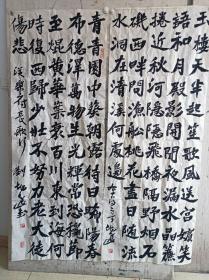 玉樓天半起笙歌風送宮嬪笑
語和月殿影開聞夜漏水晶簾
捲近秋河隱隱飛橋隔野烟石
磯西畔問漁船桃花盡日隨流
水洞在清溪何處邊
青青園中葵朝露待日晞陽春
布德澤萬物生光輝常恐秋節
至焜黃華葉衰百川東到海何
時復西歸少壯不努力老大徒
傷悲 漢樂府長歌行 劉